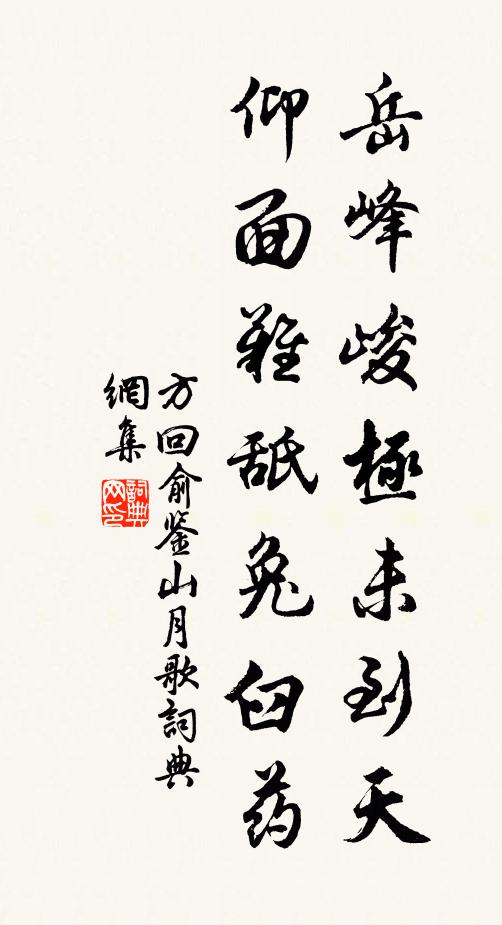 岳峰峻極未到天
仰面難舐兔臼药
方回俞鉴山月歌詞典
網集
詞典
网印